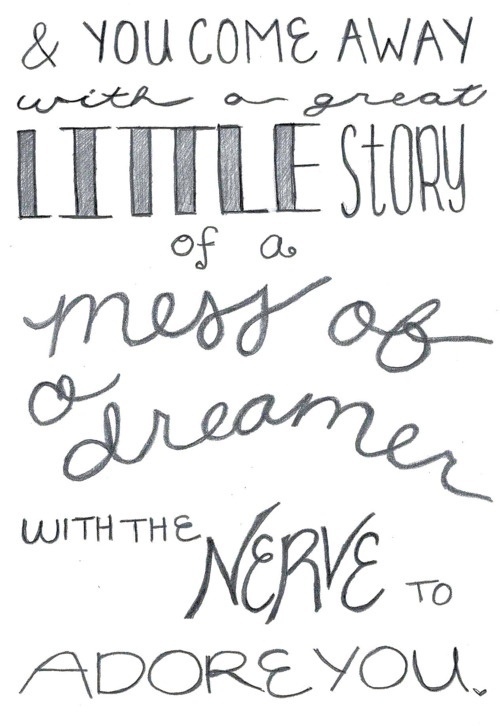 & YOU COME AWAY
with a great
LITTLE StORY
of a
mess of
a dreamer
WITH THE NERVE TO
ADORE YOU.